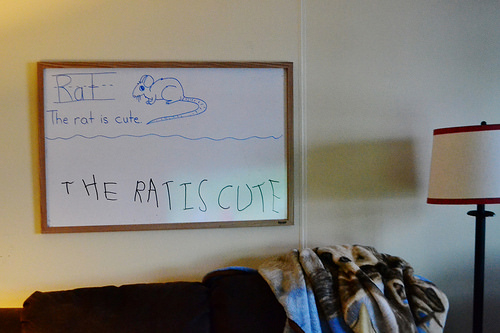 Rat
The rat is cute.
THE RAT IS CUTE